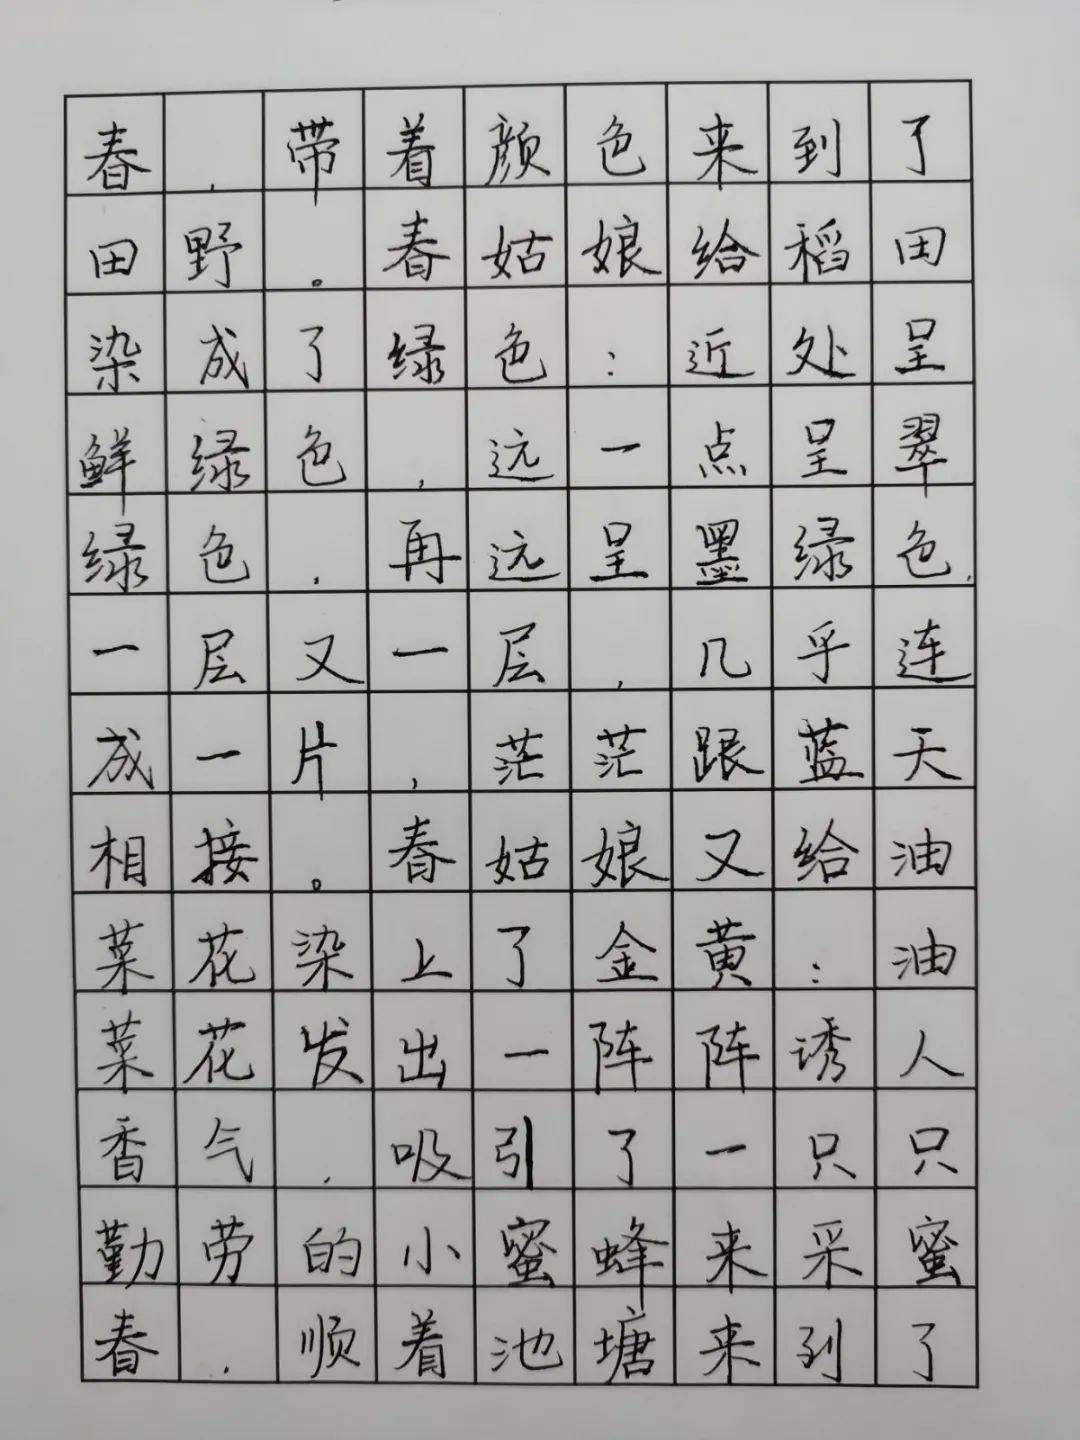 春，带着颜色来到了
田野。春姑娘给稻田
染成了绿色：近处呈
鲜绿色，远一点呈翠
绿色，再远呈墨绿色，
一层又一层，几乎连
成一片，茫茫跟蓝天
相接。春姑娘又给油
菜花染上了金黄：油
菜花发出一阵阵诱人
香气，吸引了一只只
勤劳的小蜜蜂来采蜜
春，顺着池塘来到了